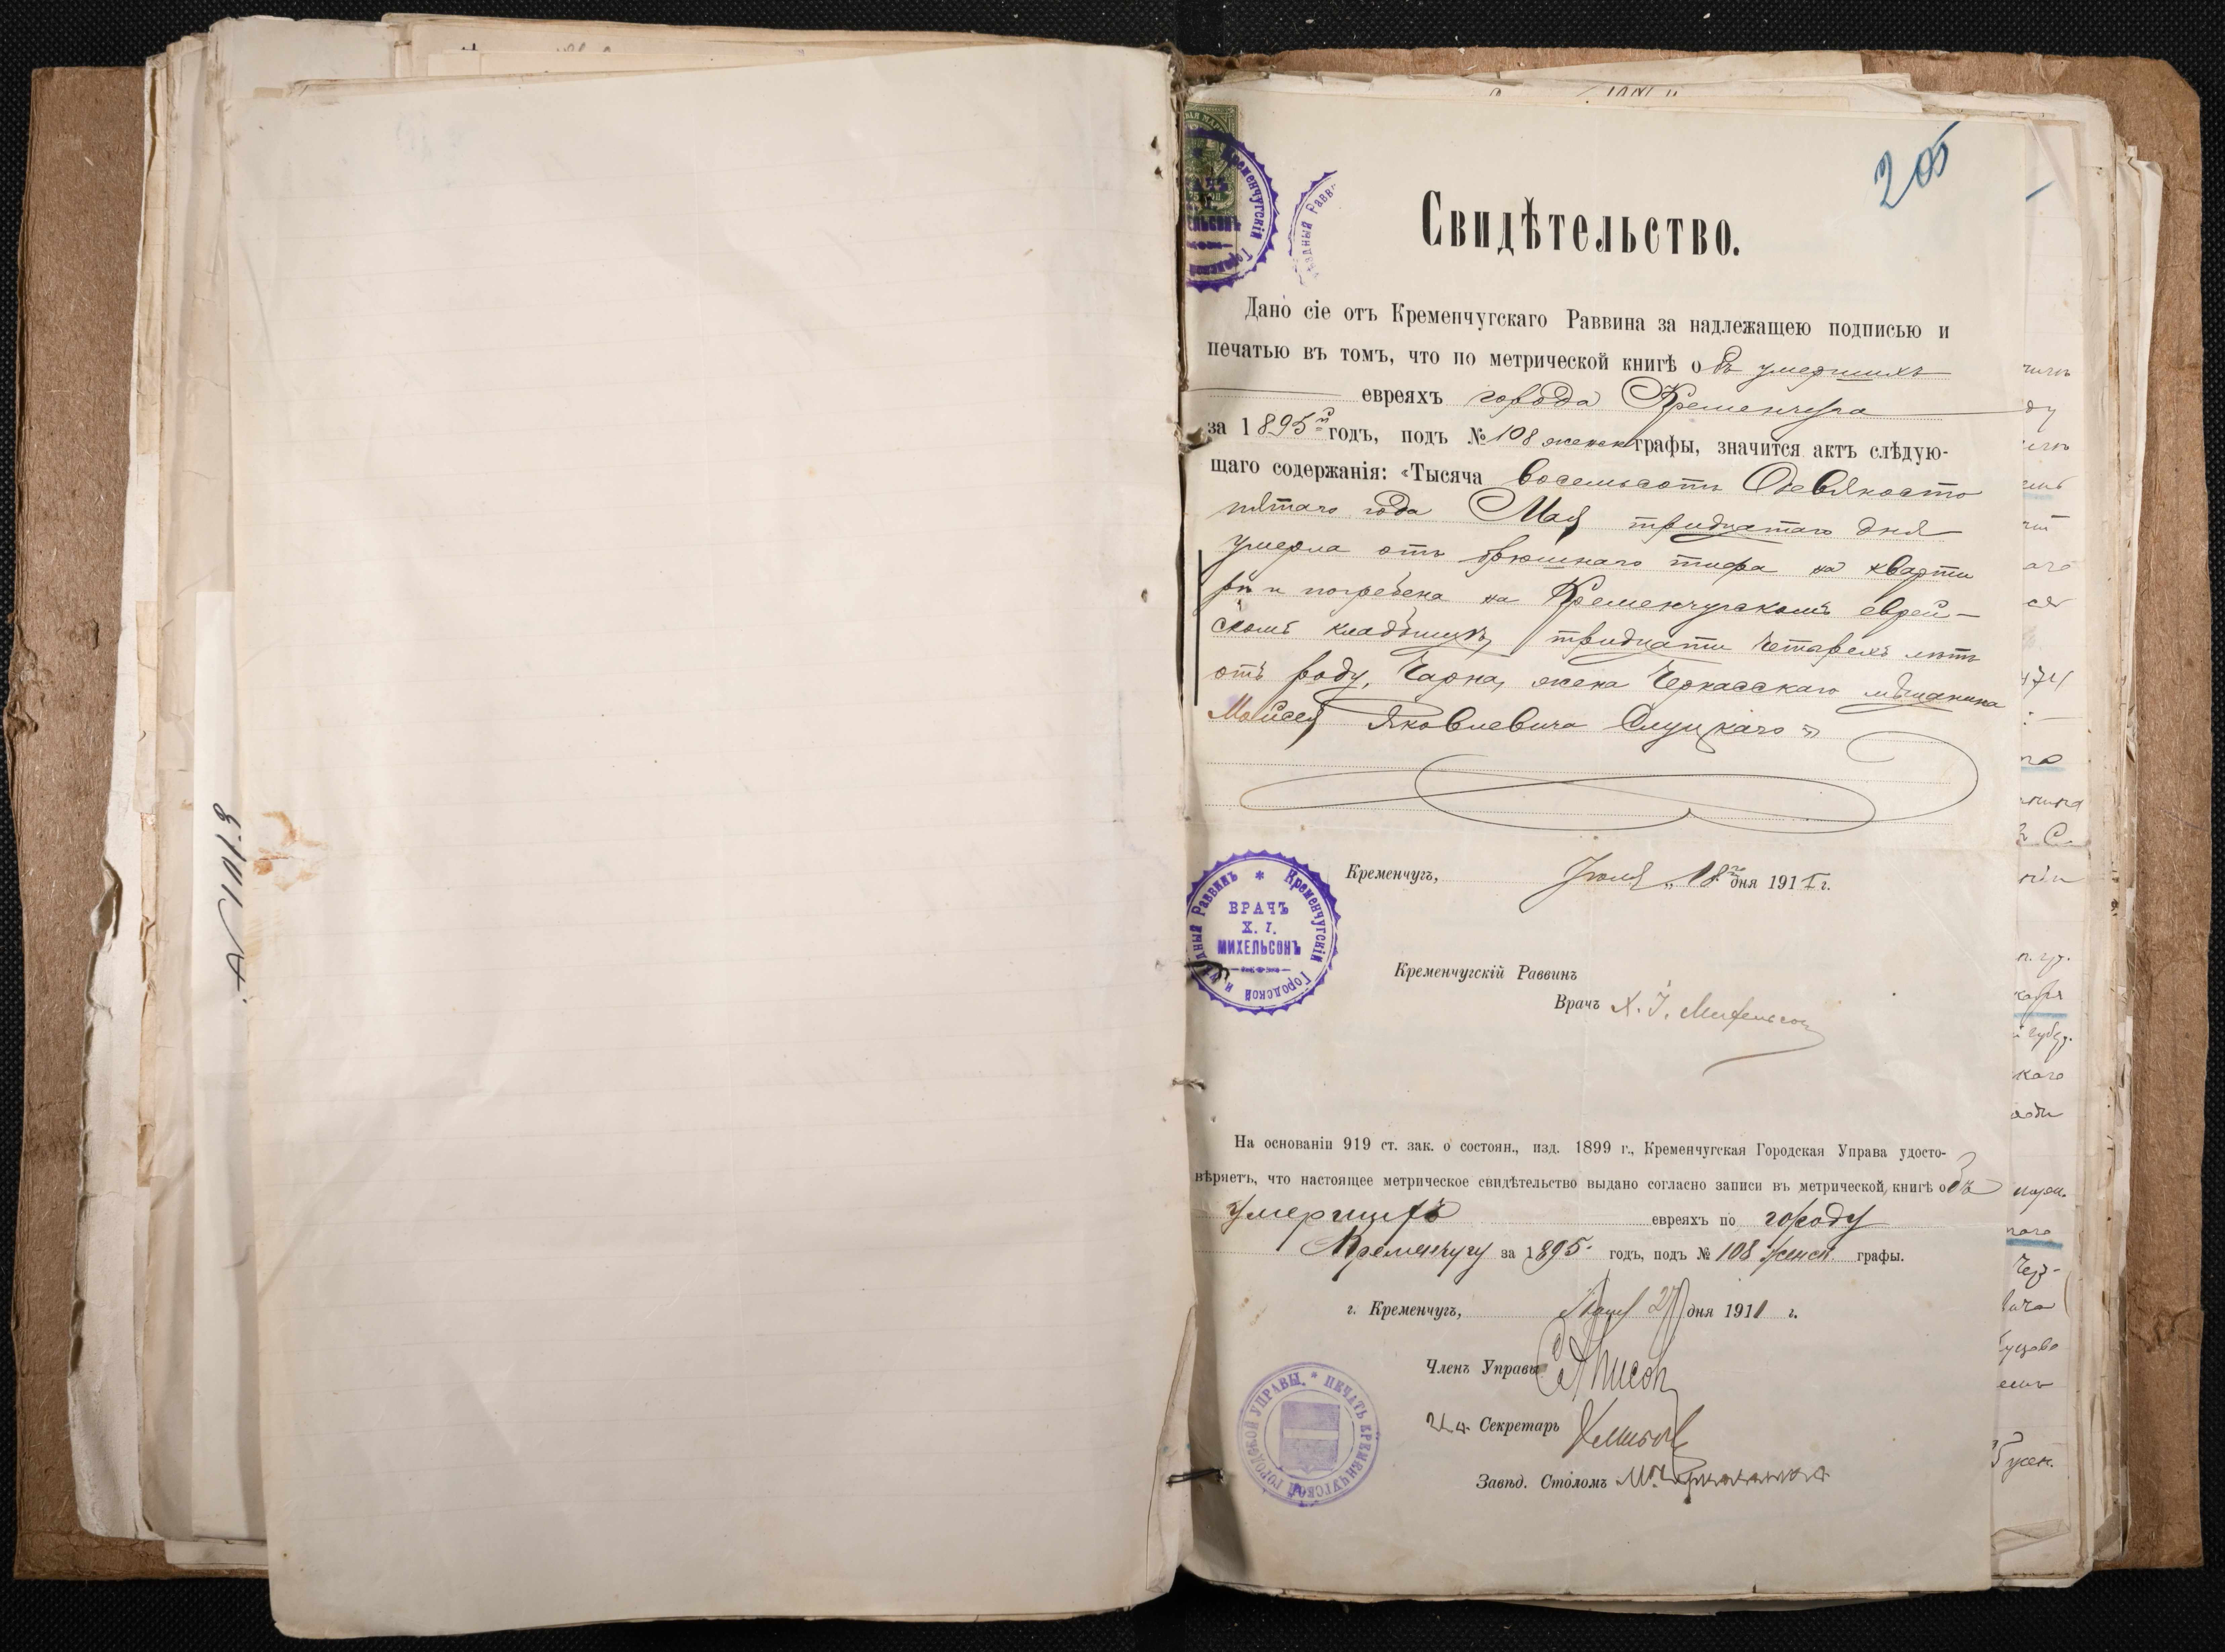 № 1014 з
205
Свидѣтельство.
Дано сіе отъ Кременчугскаго Раввина за надлежащею подписью и
печатью въ томъ, что по метрической книгѣ объ умершихъ
евреяхъ города Кременчуга
за 1895й годъ, подъ № 108 женск графы, значится актъ слѣдую-
щаго содержанія: «Тысяча восемьсотъ Девяносто
пятаго года Мая тридцатаго дня
умерла отъ брюшнаго тифа на кварти
рѣ и погребена на Кременчугскомъ еврей-
скомъ кладбищѣ, тридцати четырехъ лѣтъ
отъ роду, Чарна, жена Черкасскаго мѣщанина
Мойсея Яковлевича Слуцкаго»
Кременчугъ, Іюля „18го дня 1911 г.
Раввинъ * Кременчугскій Городской и
ВРАЧЪ
Х. І.
МИХЕЛЬСОНЪ
Кременчугскій Раввинъ
Врачъ Х. І. Михельсон
На основаніи 919 ст. зак. о состоян., изд. 1899 г., Кременчугская Городская Управа удосто-
вѣряетъ, что настоящее метрическое свидѣтельство выдано согласно записи въ метрической книгѣ объ
умершихъ евреяхъ по городу
Кременчугу за 1895 годъ, подъ № 108 женск. графы.
г. Кременчугъ, 27 дня 1911 г.
Членъ Управы
И.д. Секретарь
Завѣд. Столомъ
* ПЕЧАТЬ КРЕМЕНЧУГСКОЙ ГОРОДСКОЙ УПРАВЫ.